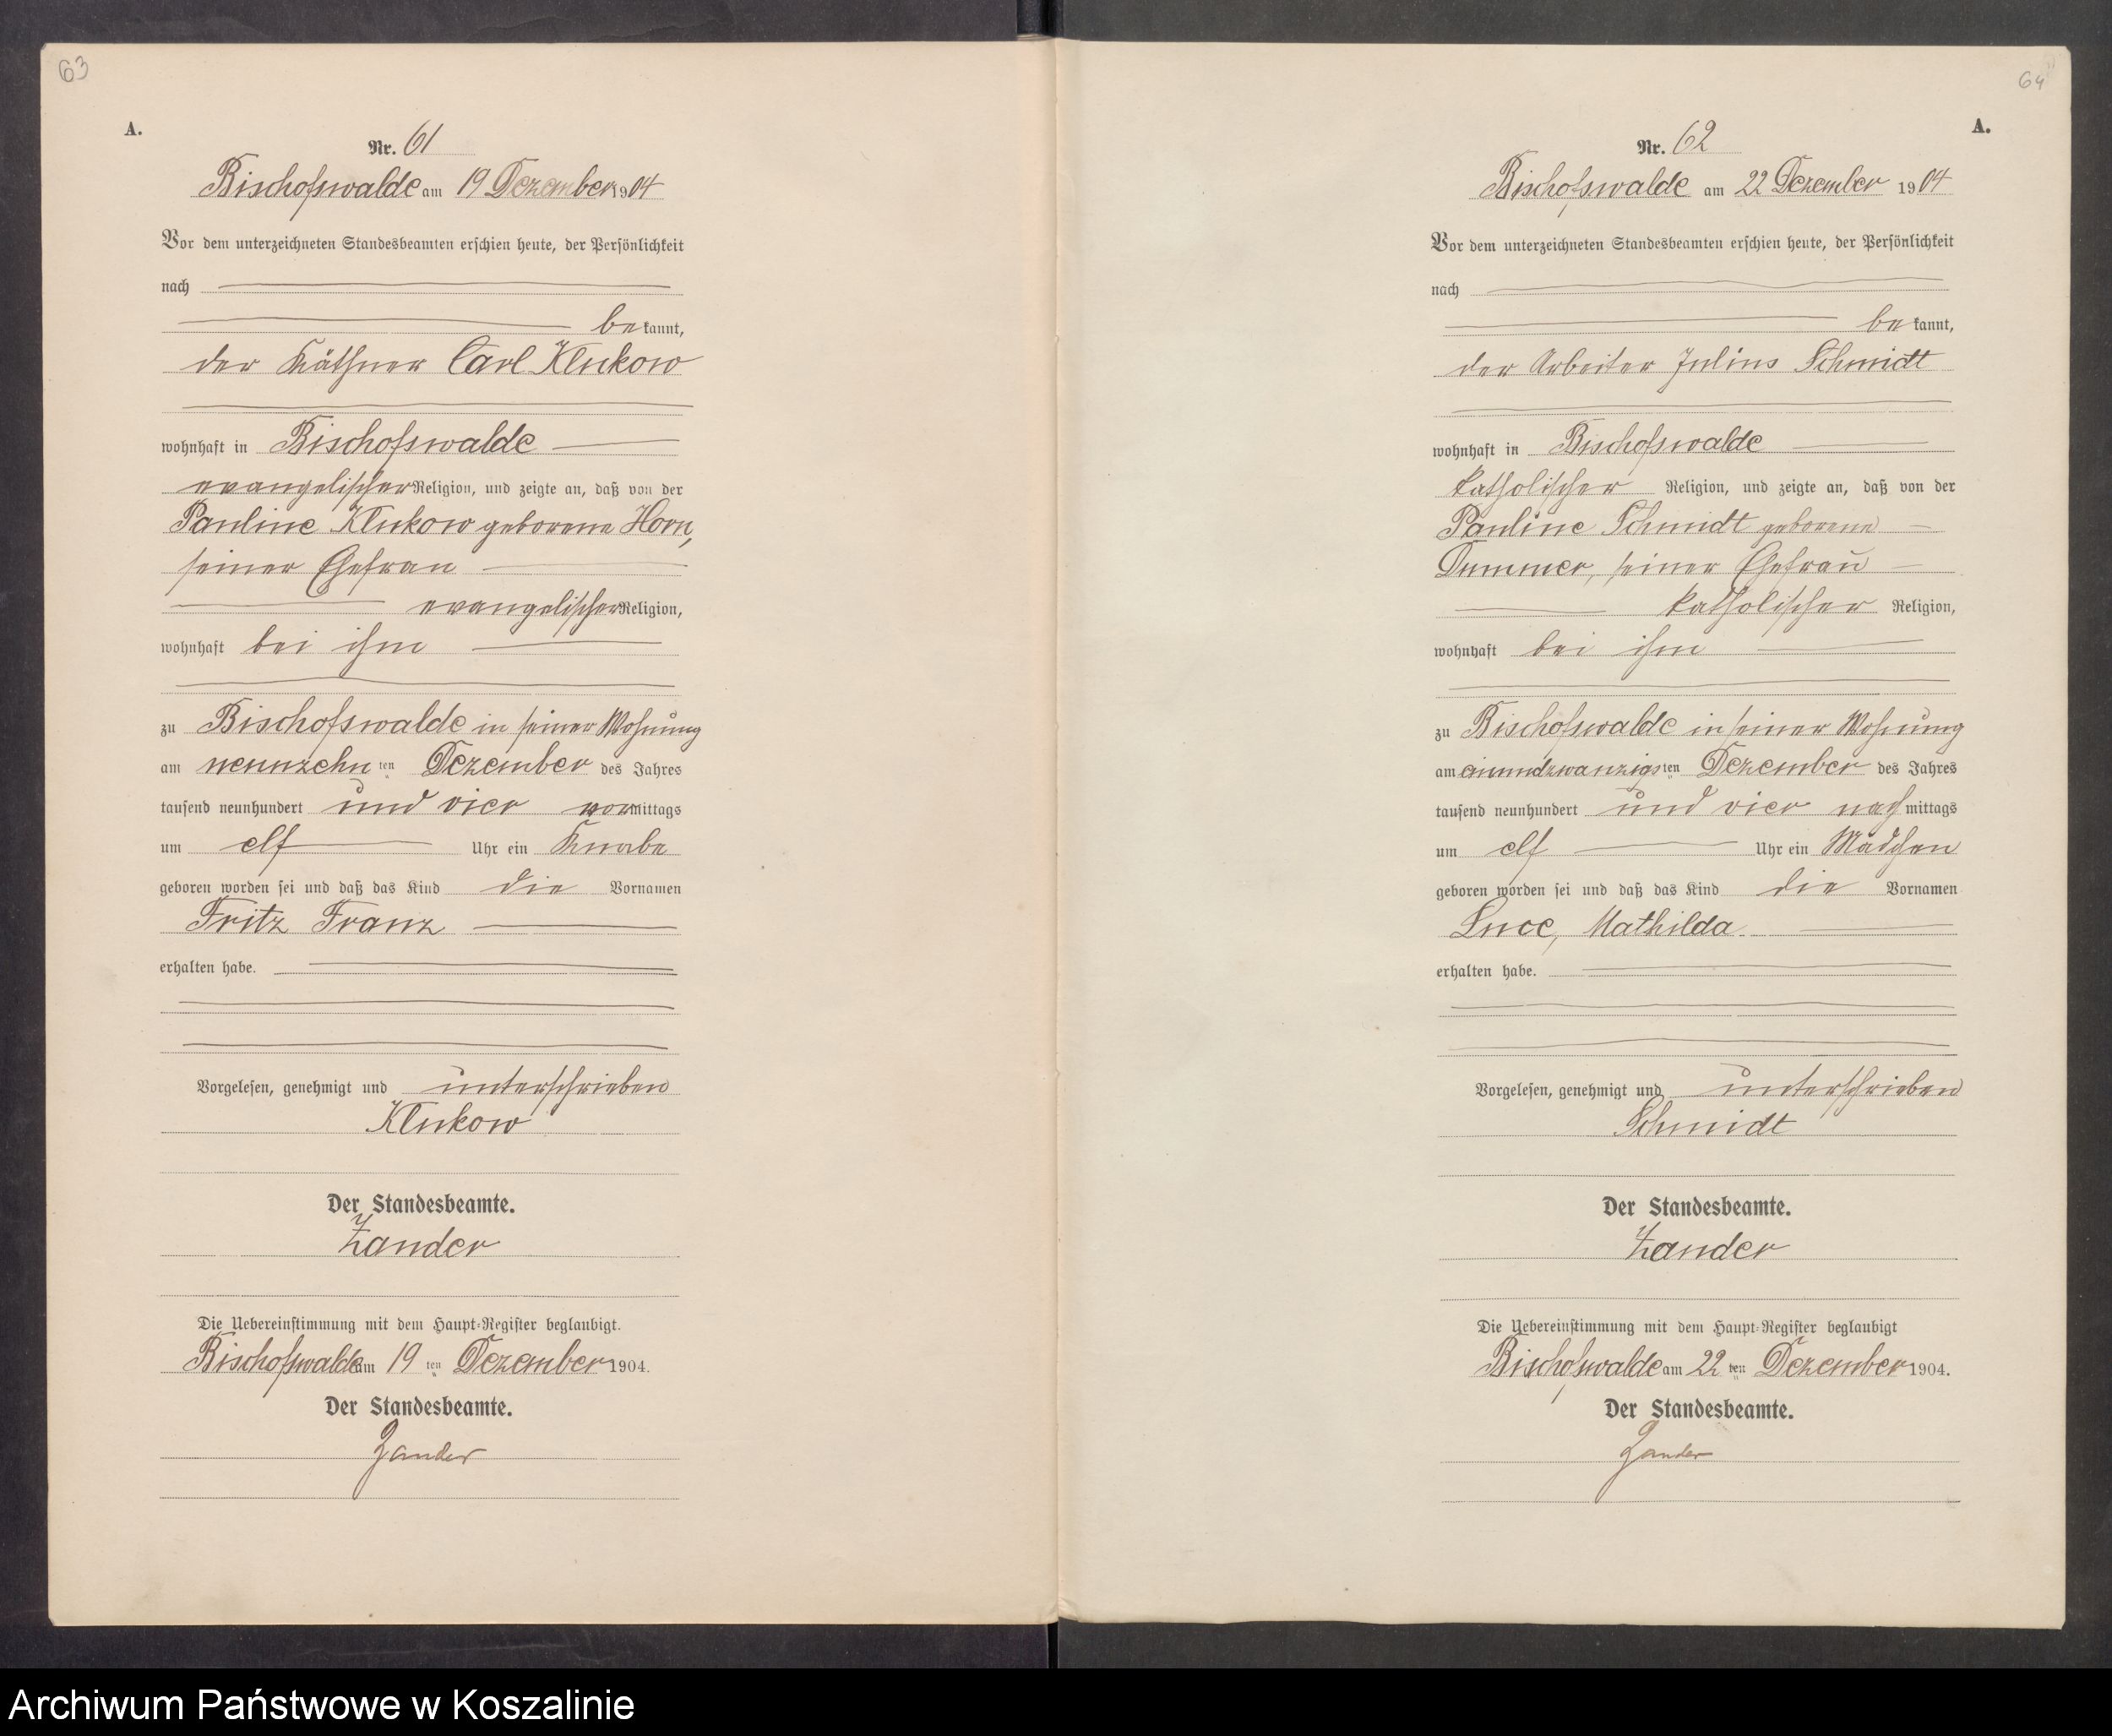 63
A.
Nr. 61
Bischofswalde am 19 Dezember 1904
Vor dem unterzeichneten Standesbeamten erschien heute, der Persönlichkeit
nach
bekannt,
der Käthner Carl Klukow
wohnhaft in Bischofswalde
evangelischer Religion, und zeigte an, daß von der
Pauline Klukow geborene Horn,
seiner Ehefrau
evangelischer Religion,
wohnhaft bei ihm
zu Bischofswalde in seiner Wohnung
am neunzehnten Dezember des Jahres
tausend neunhundert und vier vormittags
um elf Uhr ein Knabe
geboren worden sei und daß das Kind die Vornamen
Fritz Franz
erhalten habe.
Vorgelesen, genehmigt und unterschrieben
Klukow
Der Standesbeamte.
Zander
Die Uebereinstimmung mit dem Haupt-Register beglaubigt.
Bischofswalde am 19ten Dezember 1904.
Der Standesbeamte.
Zander
64
A.
Nr. 62
Bischofswalde am 22 Dezember 1904
Vor dem unterzeichneten Standesbeamten erschien heute, der Persönlichkeit
nach
bekannt,
der Arbeiter Julius Schmidt
wohnhaft in Bischofswalde
katholischer Religion, und zeigte an, daß von der
Pauline Schmidt geborene
Dummer, seiner Ehefrau
katholischer Religion,
wohnhaft bei ihm
zu Bischofswalde in seiner Wohnung
am einundzwanzigsten Dezember des Jahres
tausend neunhundert und vier nachmittags
um elf Uhr ein Mädchen
geboren worden sei und daß das Kind die Vornamen
Luce, Mathilda
erhalten habe.
Vorgelesen, genehmigt und unterschrieben
Schmidt
Der Standesbeamte.
Zander
Die Uebereinstimmung mit dem Haupt-Register beglaubigt
Bischofswalde am 22ten Dezember 1904.
Der Standesbeamte.
Zander
Archiwum Państwowe w Koszalinie